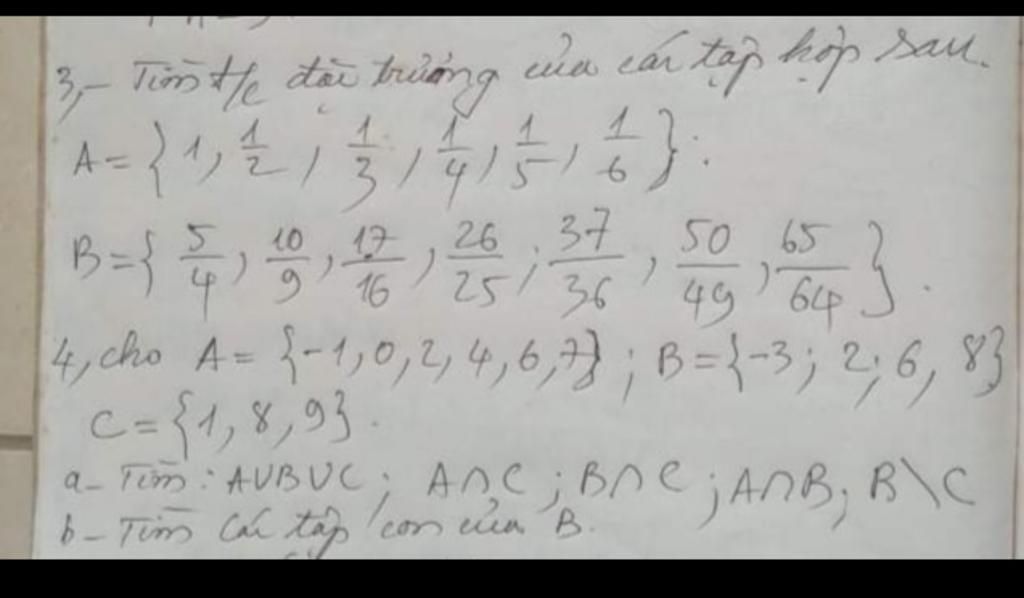 3,- Tìm t/c đặc trưng của các tập hợp sau.
A = {1, 1/2, 1/3, 1/4, 1/5, 1/6}.
B = {5/4, 10/9, 17/16, 26/25; 37/36, 50/49, 65/64}.
4, cho A = {-1, 0, 2, 4, 6, 7}; B = {-3; 2; 6, 8}
C = {1, 8, 9}.
a- Tìm: A∪B∪C; A∩C; B∩C; A∩B; B\C
b- Tìm các tập con của B.